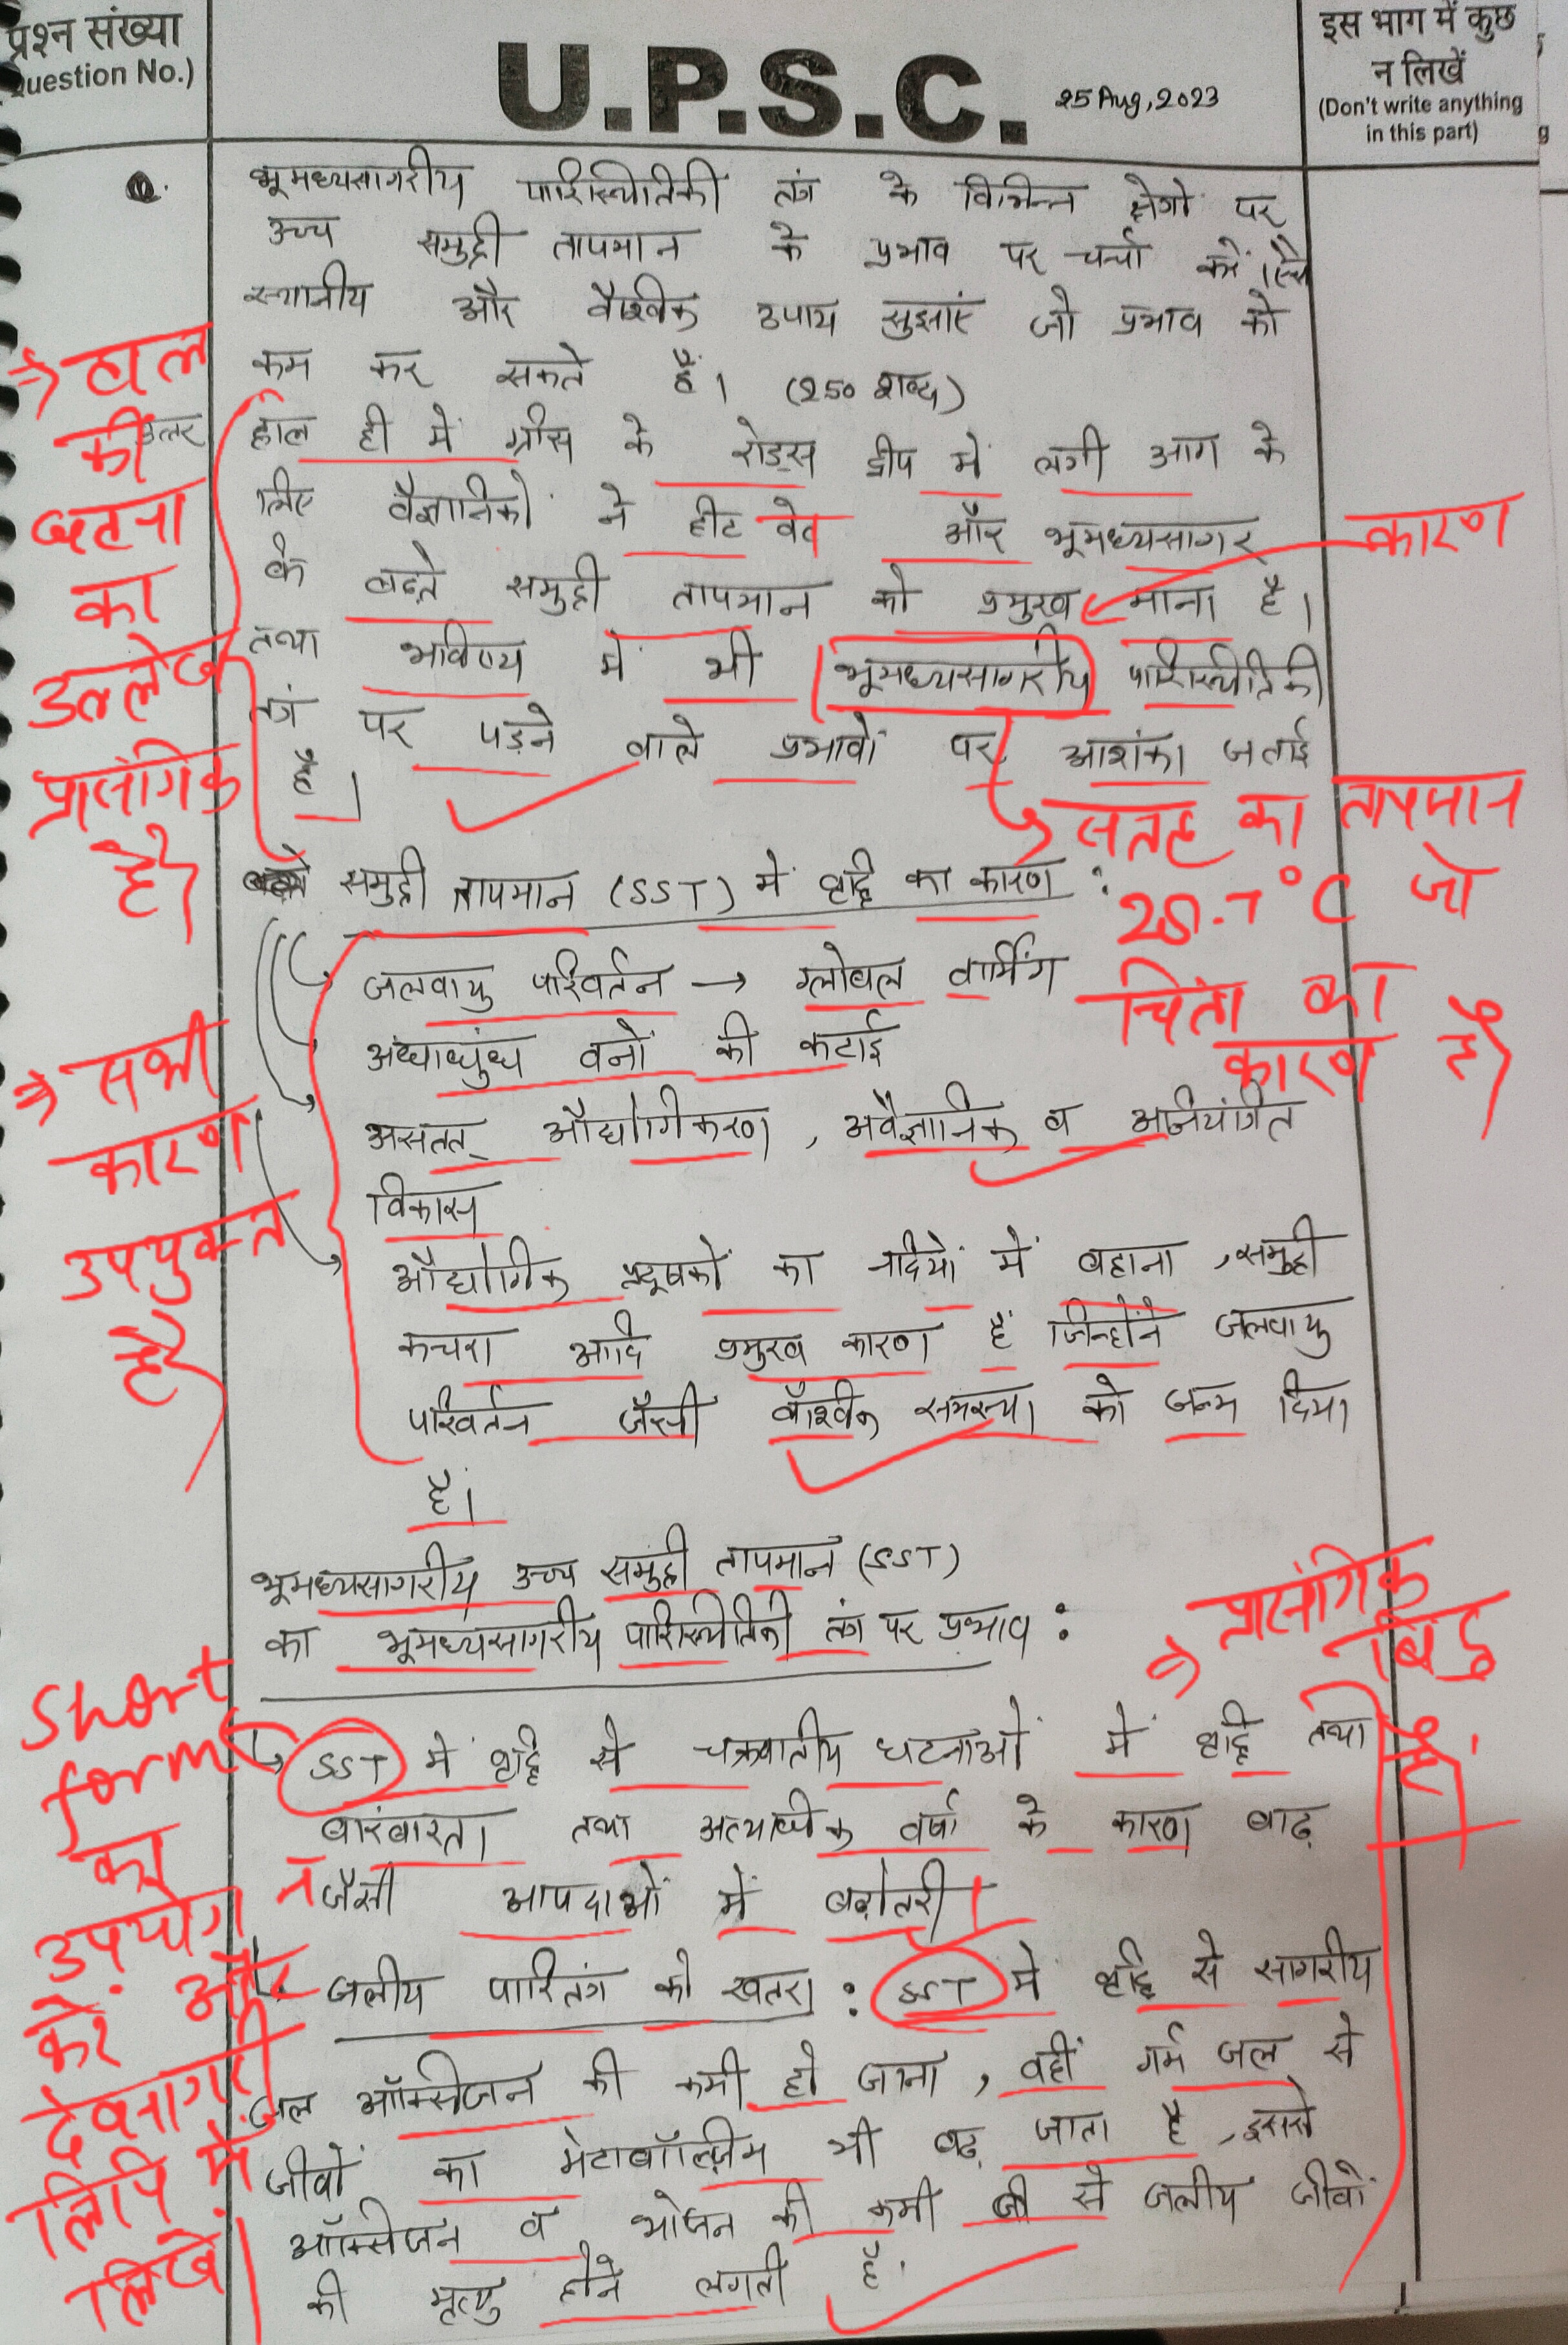 प्रश्न संख्या
Question No.)
U.P.S.C.
25 Aug, 2023
इस भाग में कुछ
न लिखें
(Don't write anything
in this part)
Q.
भूमध्यसागरीय पारिस्थितिकी तंत्र के विभिन्न क्षेत्रों पर
उच्च समुद्री तापमान के प्रभाव पर चर्चा करें।
स्थानीय और वैश्विक उपाय सुझाएं जो प्रभाव को
कम कर सकते हैं। (250 शब्द)
उत्तर
हाल ही में ग्रीस के रोड्स द्वीप में लगी आग के
लिए वैज्ञानिकों ने हीट वेव और भूमध्यसागर
के बढ़ते समुद्री तापमान को प्रमुख माना है।
तथा भविष्य में भी भूमध्यसागरीय पारिस्थितिकी
तंत्र पर पड़ने वाले प्रभावों पर आशंका जताई
है।
→ हाल
की
घटना
का
उल्लेख
प्रासंगिक
है।
कारण
सतह का तापमान
28.7°C जो
चिंता का
कारण है।
समुद्री तापमान (SST) में वृद्धि का कारण :
जलवायु परिवर्तन → ग्लोबल वार्मिंग
अंधाधुंध वनों की कटाई
असतत् औद्योगिकरण, अवैज्ञानिक व अनियंत्रित
विकास
औद्योगिक प्रदूषकों का नदियों में बहाना, समुद्री
कचरा आदि प्रमुख कारण हैं जिन्होंने जलवायु
परिवर्तन जैसी वैश्विक समस्या को जन्म दिया
है।
→ सभी
कारण
उपयुक्त
है।
भूमध्यसागरीय उच्च समुद्री तापमान (SST)
का भूमध्यसागरीय पारिस्थितिकी तंत्र पर प्रभाव :
→ प्रासंगिक
बिंदु
हैं।
SST में वृद्धि से चक्रवातीय घटनाओं में वृद्धि तथा
बारंबारता तथा अत्यधिक वर्षा के कारण बाढ़
जैसी आपदाओं में बढ़ोतरी।
जलीय पारितंत्र को खतरा : SST में वृद्धि से सागरीय
जल ऑक्सिजन की कमी हो जाना, वहीं गर्म जल से
जीवों का मेटाबॉल्ज़िम भी बढ़ जाता है, इससे
ऑक्सिजन व भोजन की कमी से जलीय जीवों
की मृत्यु होने लगती है।
Short
form
का
उपयोग न
करें और
देवनागरी
लिपि में
लिखें।